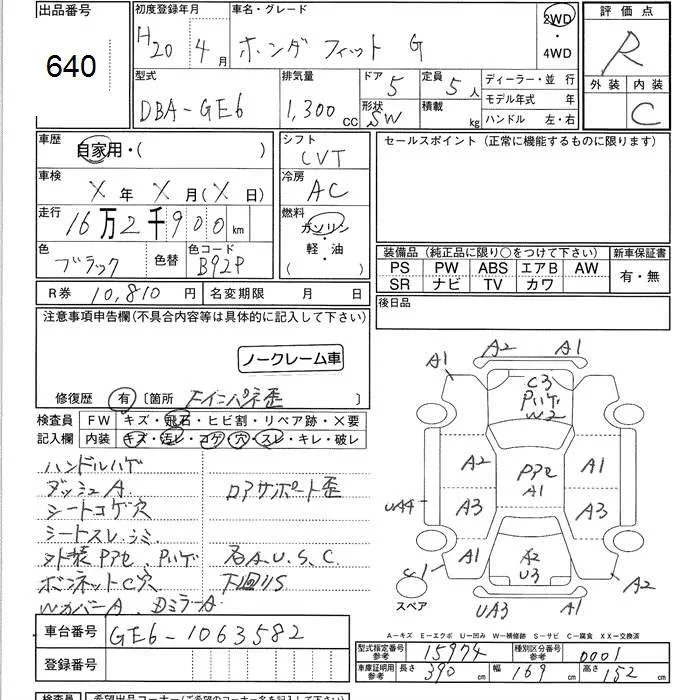 出品番号
640
初度登録年月
H20 4月
車名・グレード
ホンダ フィット G
2WD
・
4WD
評価点
R
外装 内装
C
型式
DBA-GE6
排気量
1,300 CC
ドア 5
形状 SW
定員 5人
積載 kg
ディーラー・並 行
モデル年式 年
ハンドル 左・右
車歴
自家用・( )
車検
X 年 X 月(X 日)
走行
16万2千900 km
色
ブラック
色替
色コード
B92P
シフト
CVT
冷房
AC
燃料
ガソリン
・
軽・油
( )
セールスポイント (正常に機能するものに限ります)
装備品 (純正品に限り〇をつけて下さい)
PS PW ABS エアB AW
SR ナビ TV カワ
新車保証書
有・無
後日品
R券 10,810 円 名変期限 月 日
注意事項申告欄(不具合内容等は具体的に記入して下さい)
ノークレーム車
修復歴 有 〔箇所 Fインパネ歪 〕
検査員 FW キズ・飛石・ヒビ割・リペア跡・X要
記入欄 内装 キズ・汚レ・コゲ・穴・スレ・キレ・破レ
ハンドルハゲ
ダッシュA
ロアサポート歪
シートコゲ穴
シートスレ、シミ
外装Pアセ、Pハゲ 各A.U.S.C
ボンネットC穴 下回りS
WカバーA DミラーA
A1 A2 A1
C3
Pハゲ
W2
A2 Pアセ A1
A1
UA4 A3 A3
A1 A2 A1
U3
C1 A2
スペア UA3 A1
A-キズ E-エクボ U-凹み W-補修跡 S-サビ C-腐食 XX-交換済
車台番号 GE6-1063582
登録番号
型式指定番号 参考 15974 種別区分番号 参考 0001
車庫証明用 参考 長さ 390 cm 幅 169 cm 高さ 152 cm
検査員 希望出品コーナー(ご希望のコーナー名を記入下さい)